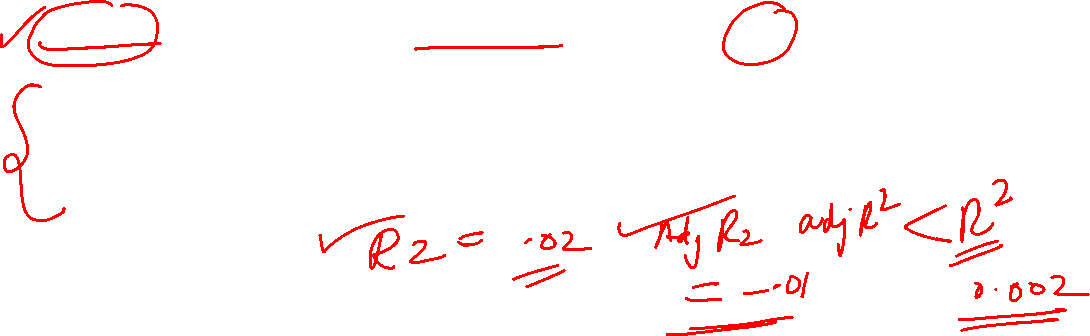 R2 = .02 Adj R2 adj R² < R²
= -.01 0.002